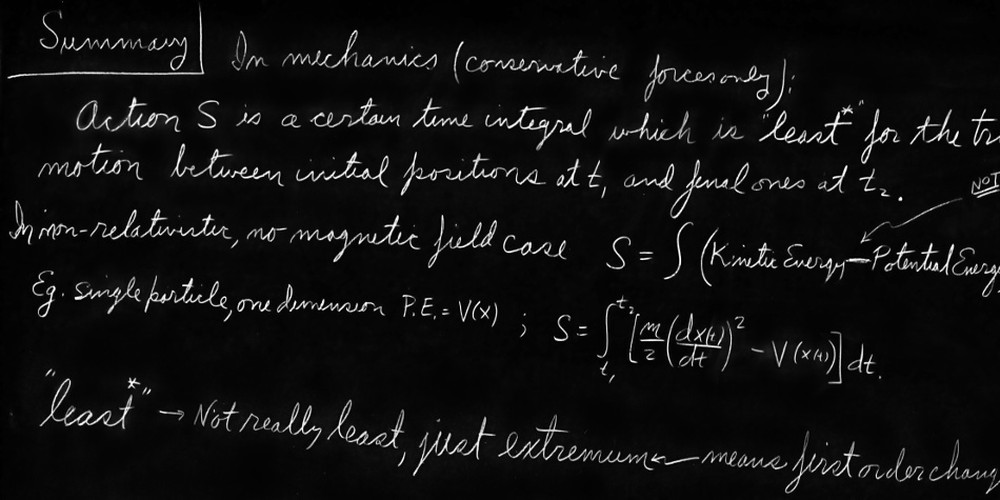 Summary In mechanics (conservative forces only):
Action S is a certain time integral which is "least*" for the tr
motion between initial positions at t₁ and final ones at t₂.
NOT
In non-relativistic, no magnetic field case S = ∫ (Kinetic Energy — Potential Energy
Eg. single particle, one dimension P.E. = V(x) ; S = ∫_{t₁}^{t₂} [m/2 (dx(t)/dt)² - V(x(t))] dt.
"least*" → Not really least, just extremum ← means first order chang